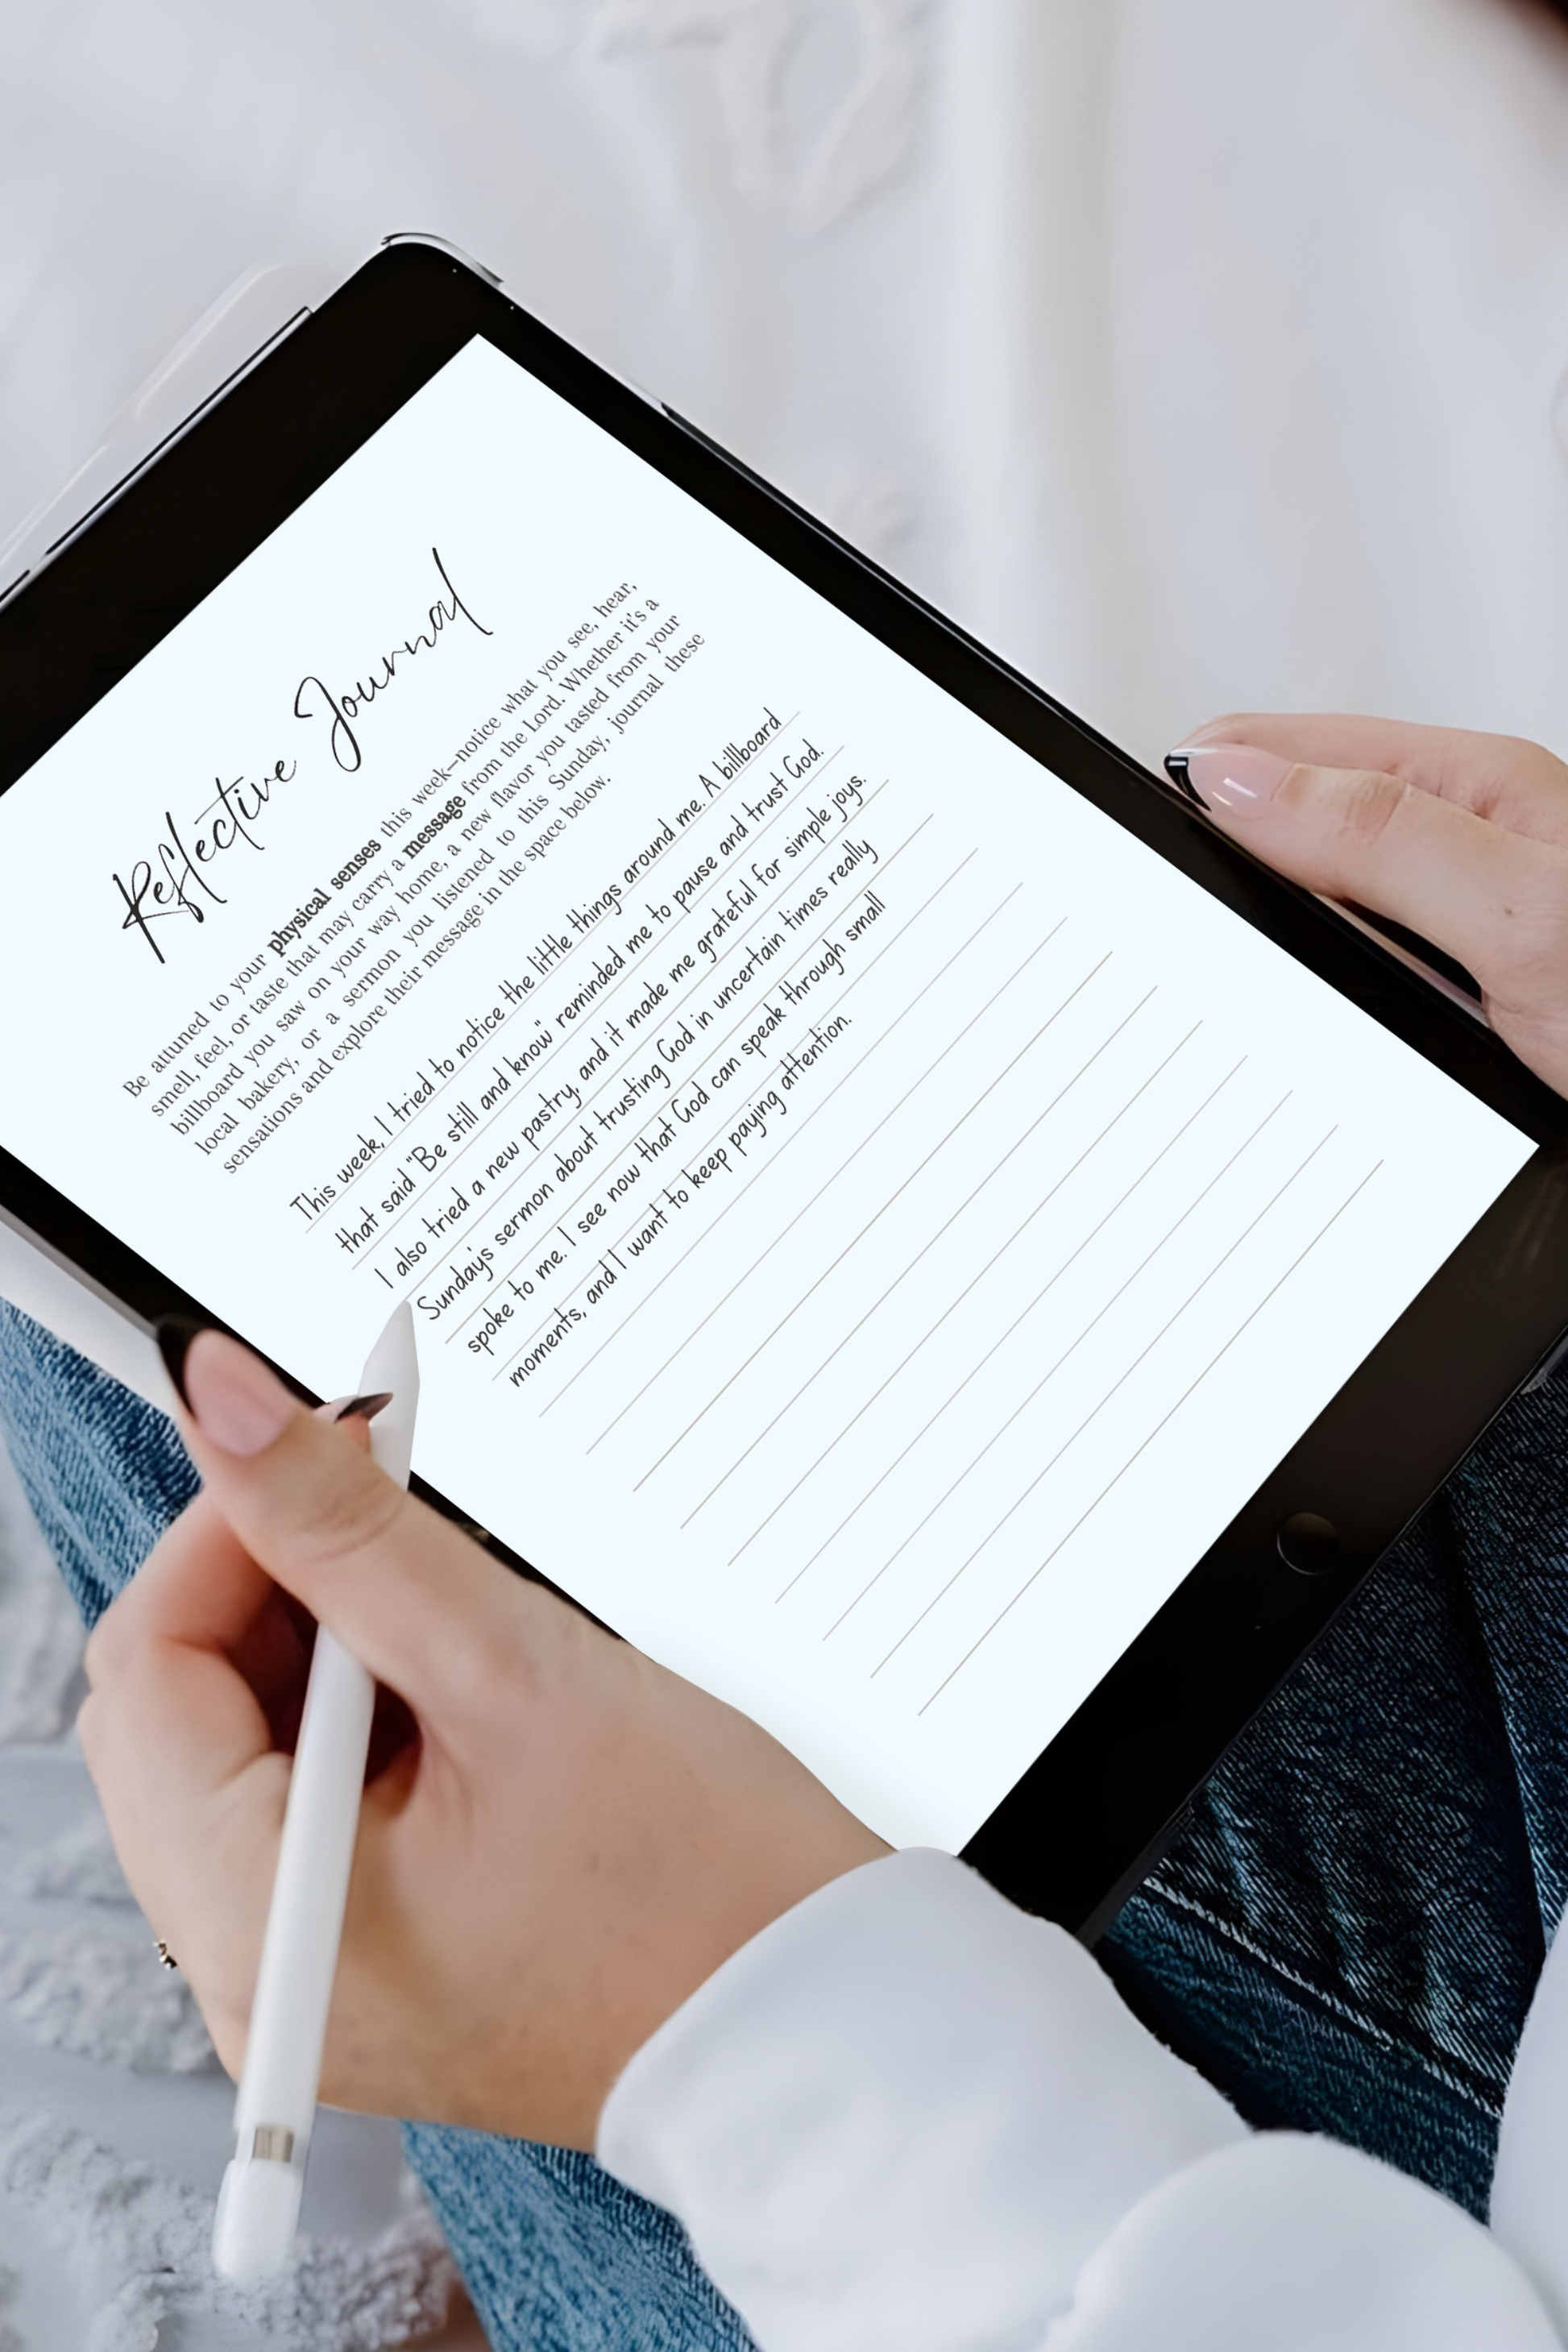 Reflective Journal
Be attuned to your physical senses this week—notice what you see, hear,
smell, feel, or taste that may carry a message from the Lord. Whether it's a
billboard you saw on your way home, a new flavor you tasted from your
local bakery, or a sermon you listened to this Sunday, journal these
sensations and explore their message in the space below.
This week, I tried to notice the little things around me. A billboard
that said "Be still and know" reminded me to pause and trust God.
I also tried a new pastry, and it made me grateful for simple joys.
Sunday's sermon about trusting God in uncertain times really
spoke to me. I see now that God can speak through small
moments, and I want to keep paying attention.